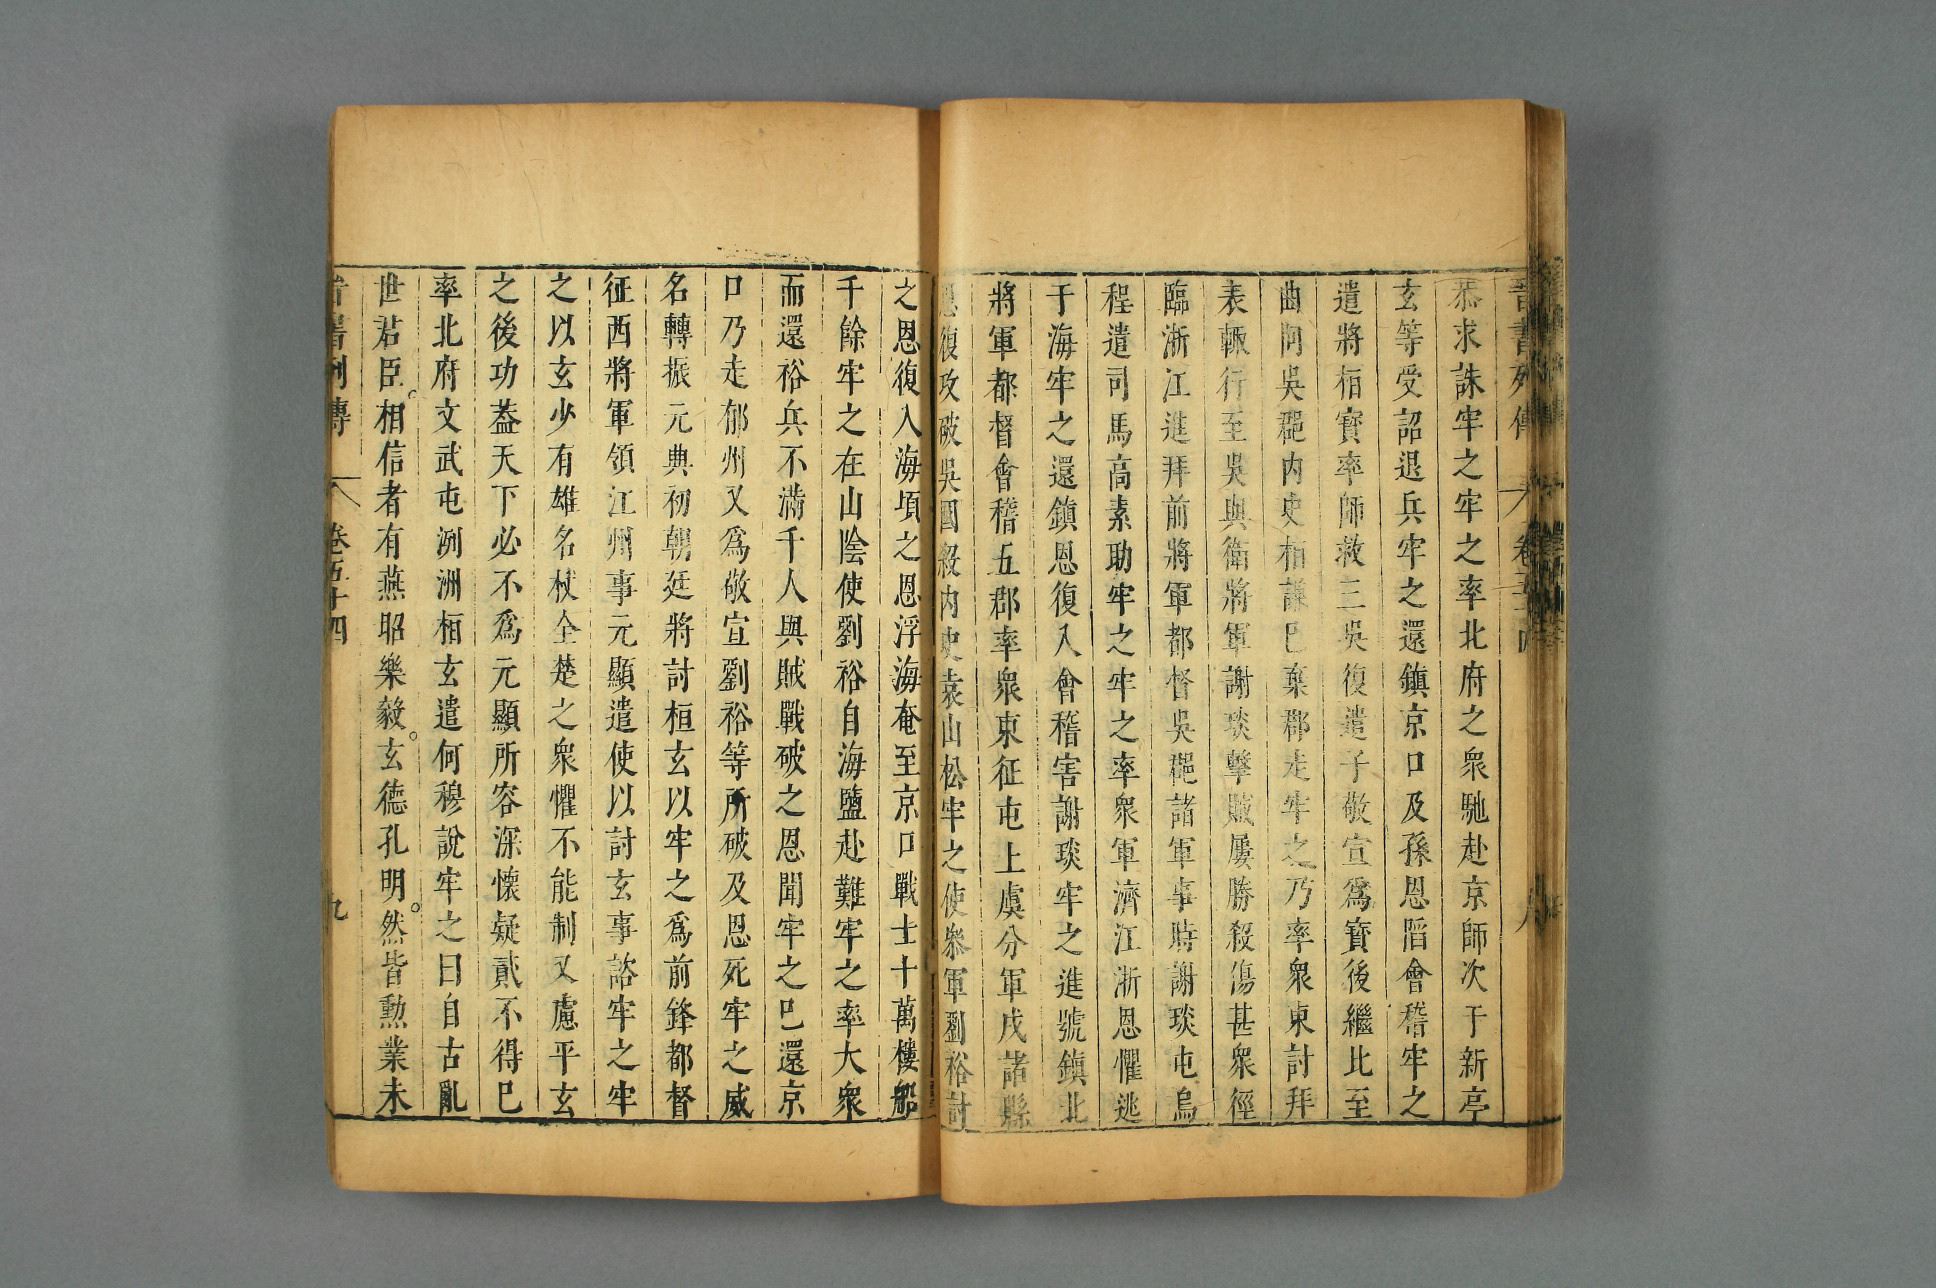 晉書列傳 卷五十四 八
恭求誅牢之牢之率北府之衆馳赴京師次于新亭
玄等受詔退兵牢之還鎮京口及孫恩䧟會稽牢之
遣將桓寶率師救三吳復遣子敬宣爲寶後繼比至
曲阿吳郡内史桓謙已棄郡走牢之乃率衆東討拜
表輒行至吳與衛將軍謝琰擊賊屢勝殺傷甚衆徑
臨浙江進拜前將軍都督吳郡諸軍事時謝琰屯烏
程遣司馬高素助牢之牢之率衆軍濟江浙恩懼逃
于海牢之還鎮恩復入會稽害謝琰牢之進號鎮北
將軍都督會稽五郡率衆東征屯上虞分軍戍諸縣
恩復攻破吳國殺内史袁山松牢之使叅軍劉裕討
之恩復入海頃之恩浮海奄至京口戰士十萬樓船
千餘牢之在山陰使劉裕自海鹽赴難牢之率大衆
而還裕兵不滿千人與賊戰破之恩聞牢之已還京
口乃走郁州又爲敬宣劉裕等所破及恩死牢之威
名轉振元典初朝廷將討桓玄以牢之爲前鋒都督
征西將軍領江州事元顯遣使以討玄事諮牢之牢
之以玄少有雄名杖全楚之衆懼不能制又慮平玄
之後功蓋天下必不爲元顯所容深懷疑貳不得已
率北府文武屯洌洲桓玄遣何穆說牢之曰自古亂
世君臣。相信者有燕昭樂毅。玄德孔明。然皆勲業未
晉書列傳 卷五十四 九